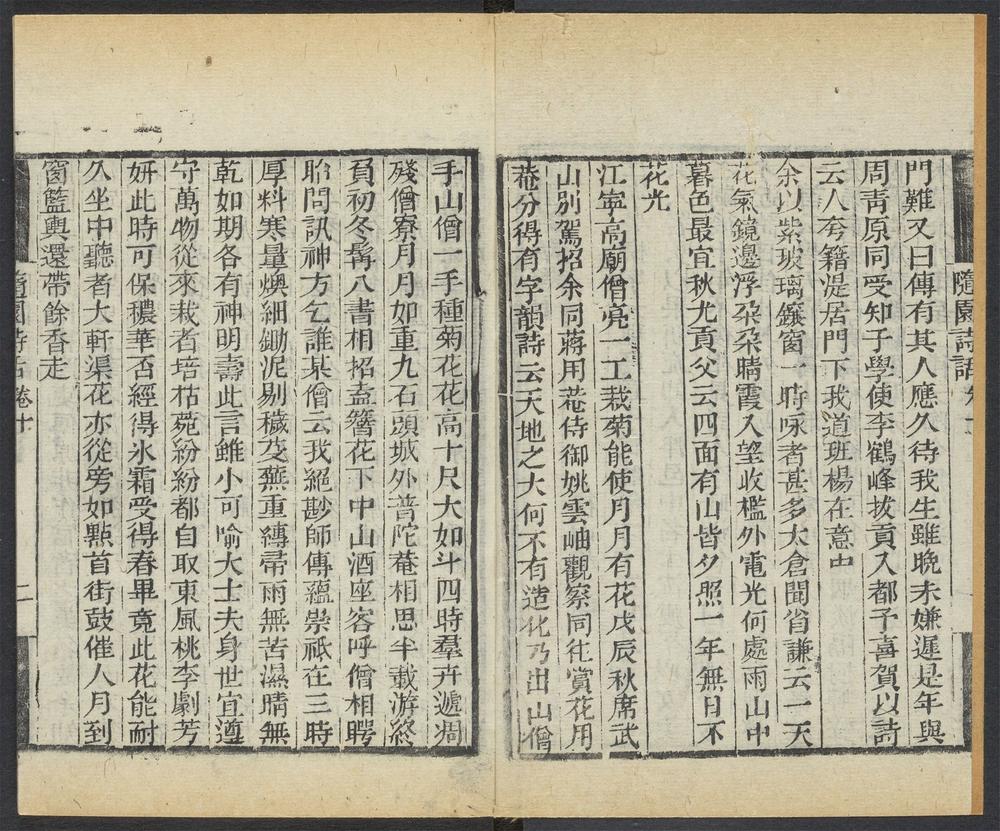 門難又曰傳有其人應久待我生雖晚未嫌遲是年與
周靑原同受知于學使李鶴峰拔貢入都予喜賀以詩
云人夸籍湜居門下我道班楊在意中
余以紫玻璃鑲窗一時咏者甚多太倉聞省謙云一天
花氣鏡邊浮朵朵晴霞入望收檻外電光何處雨山中
暮色最宜秋尤貢父云四面有山皆夕照一年無日不
花光
江寧高廟僧亮一工栽菊能使月月有花戊辰秋席武
山別駕招余同蔣用菴侍御姚雲岫觀察同往賞花用
菴分得有字韻詩云天地之大何不有造化乃出山僧
隨園詩話卷十
手山僧一手種菊花花高十尺大如斗四時羣卉遞凋
殘僧寮月月如重九石頭城外普陀菴相思半載游終
負初冬髯八書相招盍簪花下中山酒座客呼僧相睜
眙問訊神方乞誰某僧云我絕尠師傳蘊崇祇在三時
厚料寒量燠細鋤泥剔穢芟蕪重縛帚雨無苦濕晴無
乾如期各有神明壽此言雖小可喻大士夫身世宜遵
守萬物從來栽者培枯菀紛紛都自取東風桃李劇芳
妍此時可保穠華否經得氷霜受得春畢竟此花能耐
久坐中聽者大軒渠花亦從旁如點首街鼓催人月到
窗籃輿還帶餘香走
隨園詩話 卷十
二